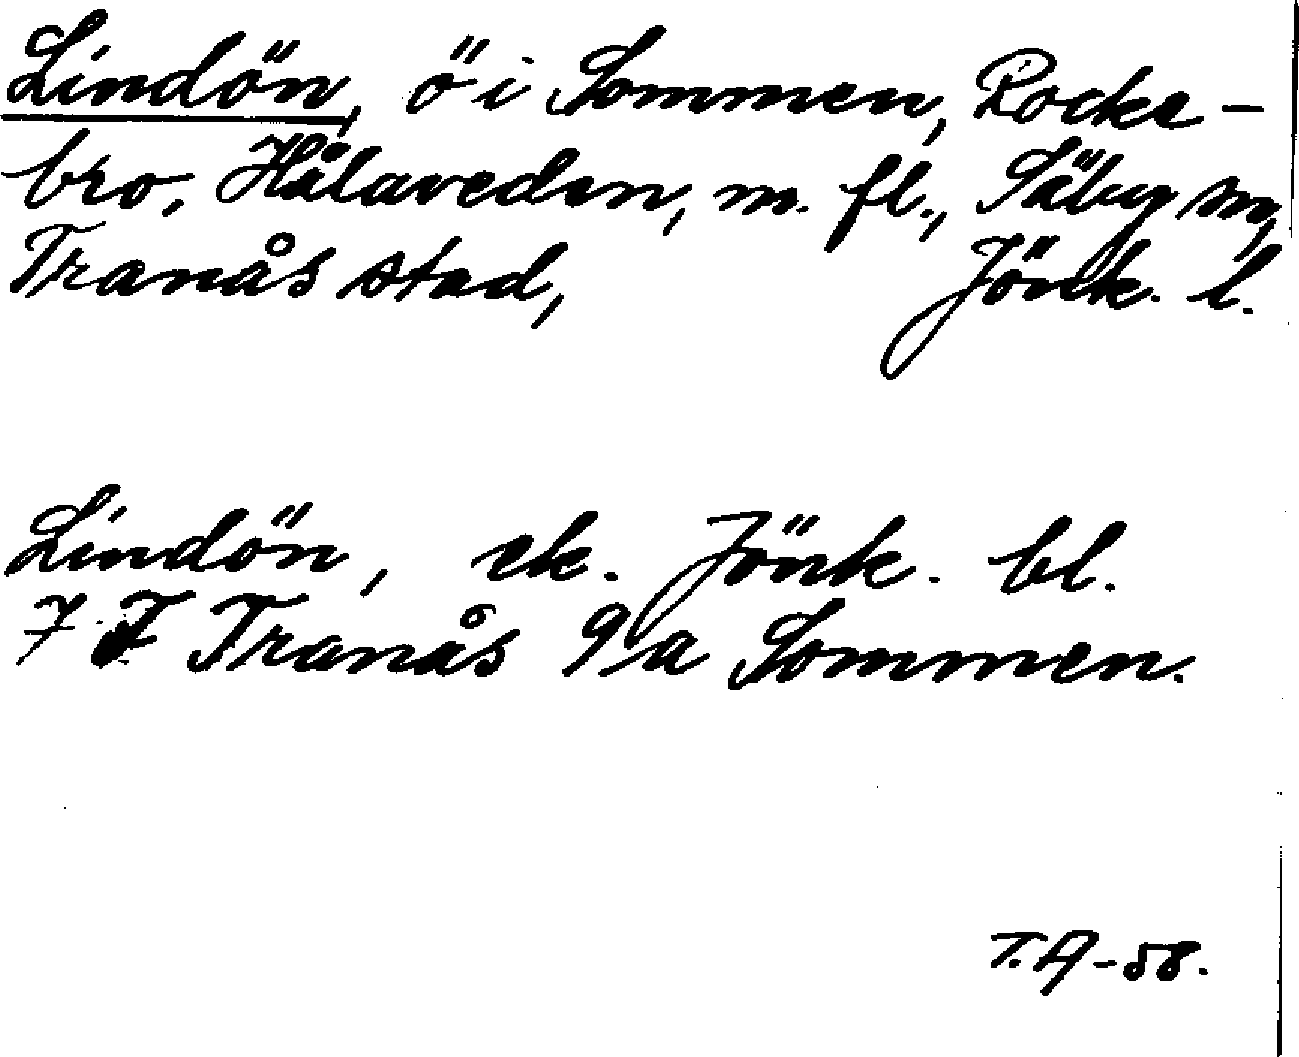 Lindön, ö i Sommen, Rocke-
bro, Hålaveden, m. fl., Säby sn,
Tranås stad, Jönk. l.
Lindön, ek. Jönk. bl.
7 F Tranås 9/a Sommen.
T.A-58.